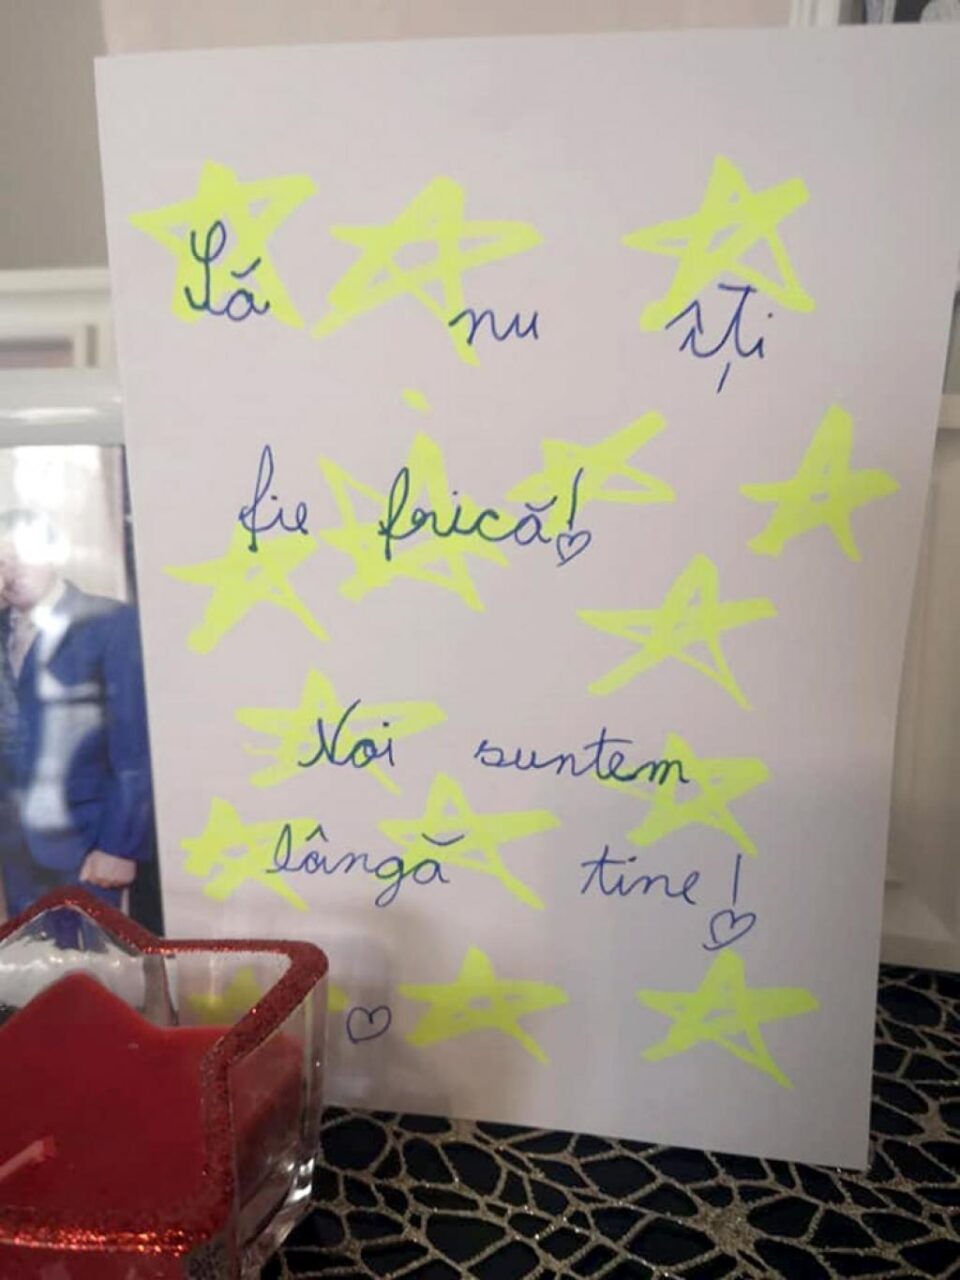 Să nu îți
fie frică!
Noi suntem
lângă tine!